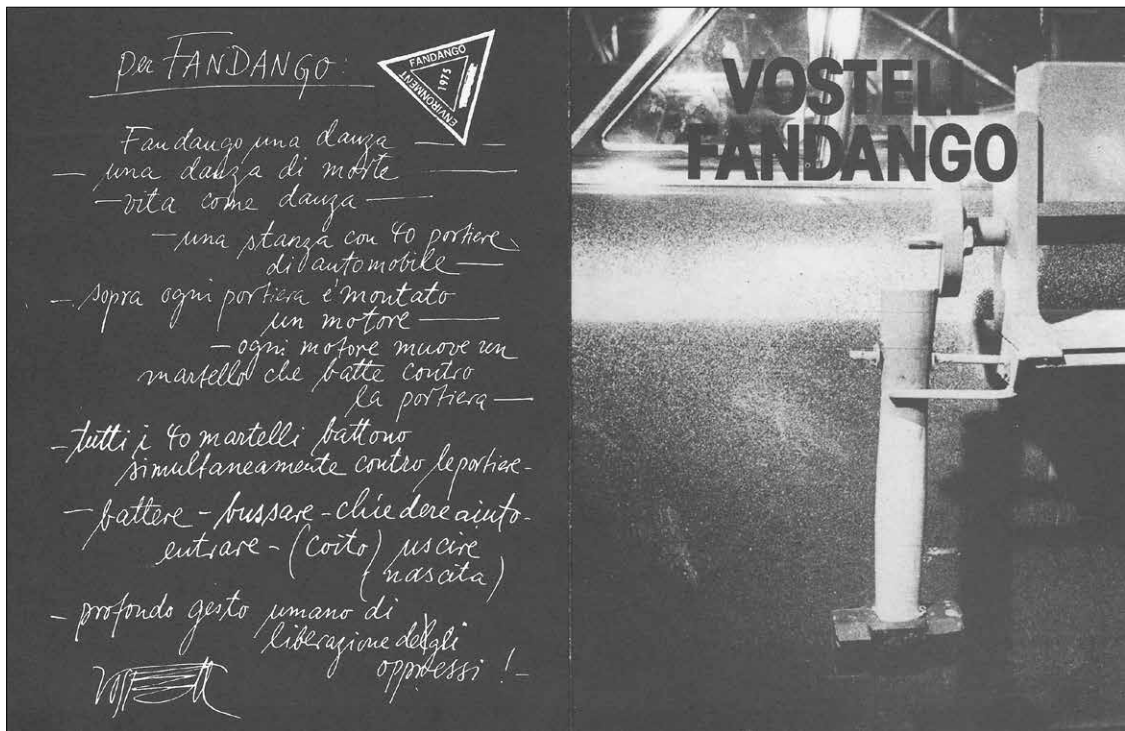 per FANDANGO:
FANDANGO
ENVIRONMENT
1975
Fandango una danza —
— una danza di morte —
— vita come danza —
— una stanza con 40 portiere
di automobile —
— sopra ogni portiera è montato
un motore —
— ogni motore muove un
martello che batte contro
la portiera —
— tutti i 40 martelli battono
simultaneamente contro le portiere —
— battere - bussare - chiedere aiuto -
entrare - (coito) uscire
(nascita)
— profondo gesto umano di
liberazione degli
oppressi ! —
Vostell
VOSTELL
FANDANGO